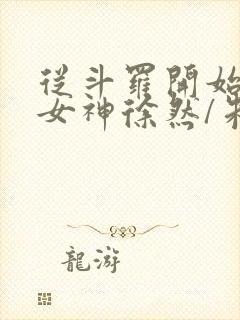 從斗羅開始
女神徐然/朱
龍游